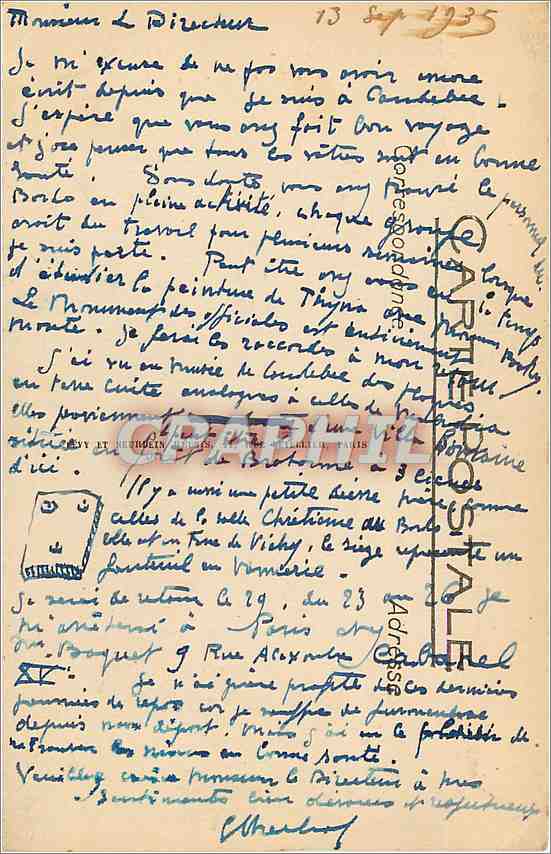 Monsieur le Directeur
13 Sep 1935
Je m'excuse de ne pas vous avoir encore
écrit depuis que je suis à Caudebec.
J'espère que vous avez fait bon voyage
et j'ose penser que tous les vôtres sont en bonne
santé. Sans doute vous avez trouvé le personnel du
Bardo en pleine activité, chaque groupe
avait du travail pour plusieurs semaines lorsque
je suis parti. Peut être avez vous eu le temps
d'étudier la peinture de Thyna
Le Monument des officiales est entièrement
monté. Je ferai les raccords à mon retour.
J'ai vu au musée de Caudebec des plaques
en terre cuite analogues à celles de
elles proviennent d'une villa Romaine
située de Brotonne à 3 lieues
d'ici.
Il y a aussi une petite pièce comme
celles de la salle Chrétienne du Bardo.
elle est en terre de Vichy, le siège représente un
fauteuil en vannerie.
Je serai de retour le 29, du 23 au 26 je
m'arrêterai à Paris chez
Baquet 9 Rue Alexandre Cabanel
XV.
Je n'ai guère profité de ces derniers
journées de repos car je souffre de furonculose
depuis mon départ, mais j'ai eu le de
retrouver les miens en bonne santé.
Veuillez croire Monsieur le Directeur à mes
sentiments bien dévoués et respectueux
CARTE POSTALE
Correspondance
Adresse
LÉVY ET NEURDEIN RÉUNIS, 44, RUE LETELLIER, PARIS
CPAPHIL